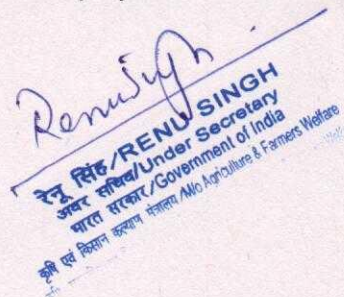 Renu Singh
रेनू सिंह/RENU SINGH
अवर सचिव/Under Secretary
भारत सरकार/Government of India
कृषि एवं किसान कल्याण मंत्रालय/M/o Agriculture & Farmers Welfare